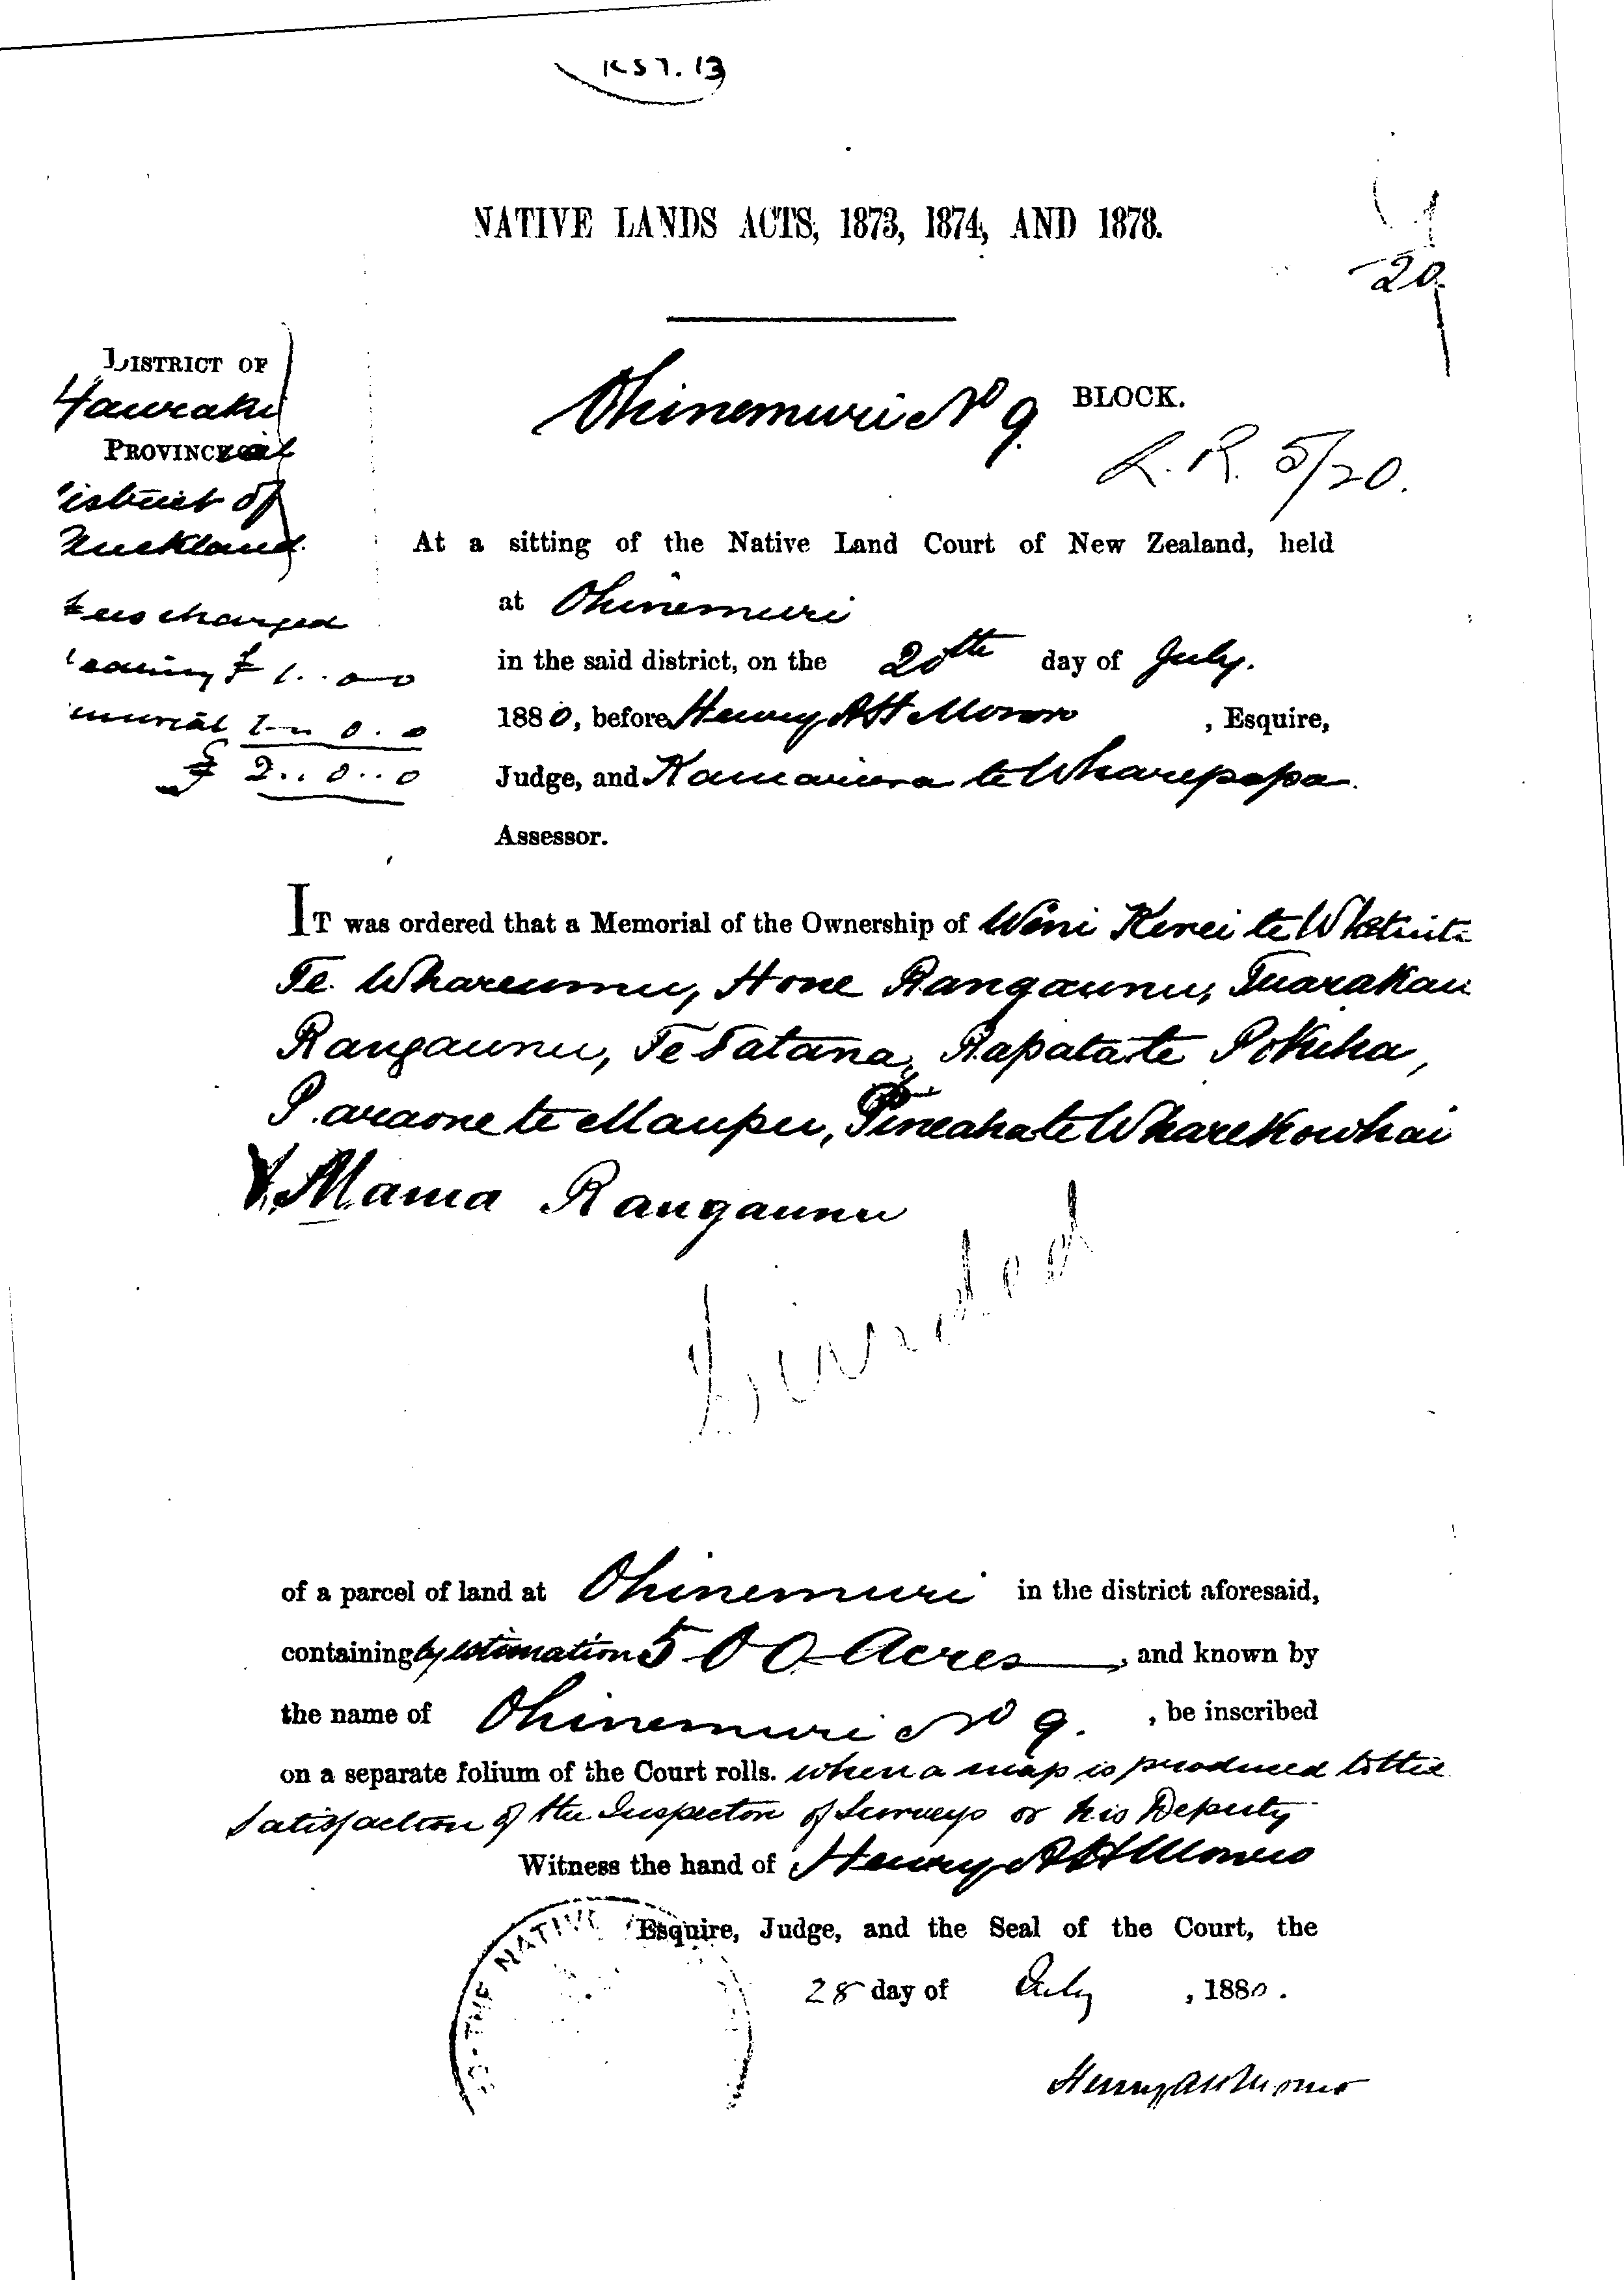 K57.13
NATIVE LANDS ACTS, 1873, 1874, AND 1878.
20
DISTRICT OF
Hauraki
PROVINCial
District of
Auckland
Ohinemuri No 9 BLOCK.
L.R. 5/20.
At a sitting of the Native Land Court of New Zealand, held
at Ohinemuri
in the said district, on the 20th day of July.
1880, before Henry A H Monro, Esquire,
Judge, and Kamariera te Wharepapa.
Assessor.
Fees charged
hearing £ 1..0-0
memorial 1-"0.0
£ 2..0..0
IT was ordered that a Memorial of the Ownership of Wini Kerei te Whetuiti
Te Whareumu, Hone Rangaunu, Tuarakau
Rangaunu, Te Tatana, Rapata te Pokiha,
Paraone te Maupu, Pineaha te Wharekowhai
& Mama Rangaunu
of a parcel of land at Ohinemuri in the district aforesaid,
containing by estimation 500 Acres, and known by
the name of Ohinemuri No 9. , be inscribed
on a separate folium of the Court rolls. when a map is produced to the
satisfaction of the Inspector of Surveys or his Deputy
Witness the hand of Henry A H Monro
Esquire, Judge, and the Seal of the Court, the
28 day of July, 1880.
Henry A H Monro
THE NATIVE